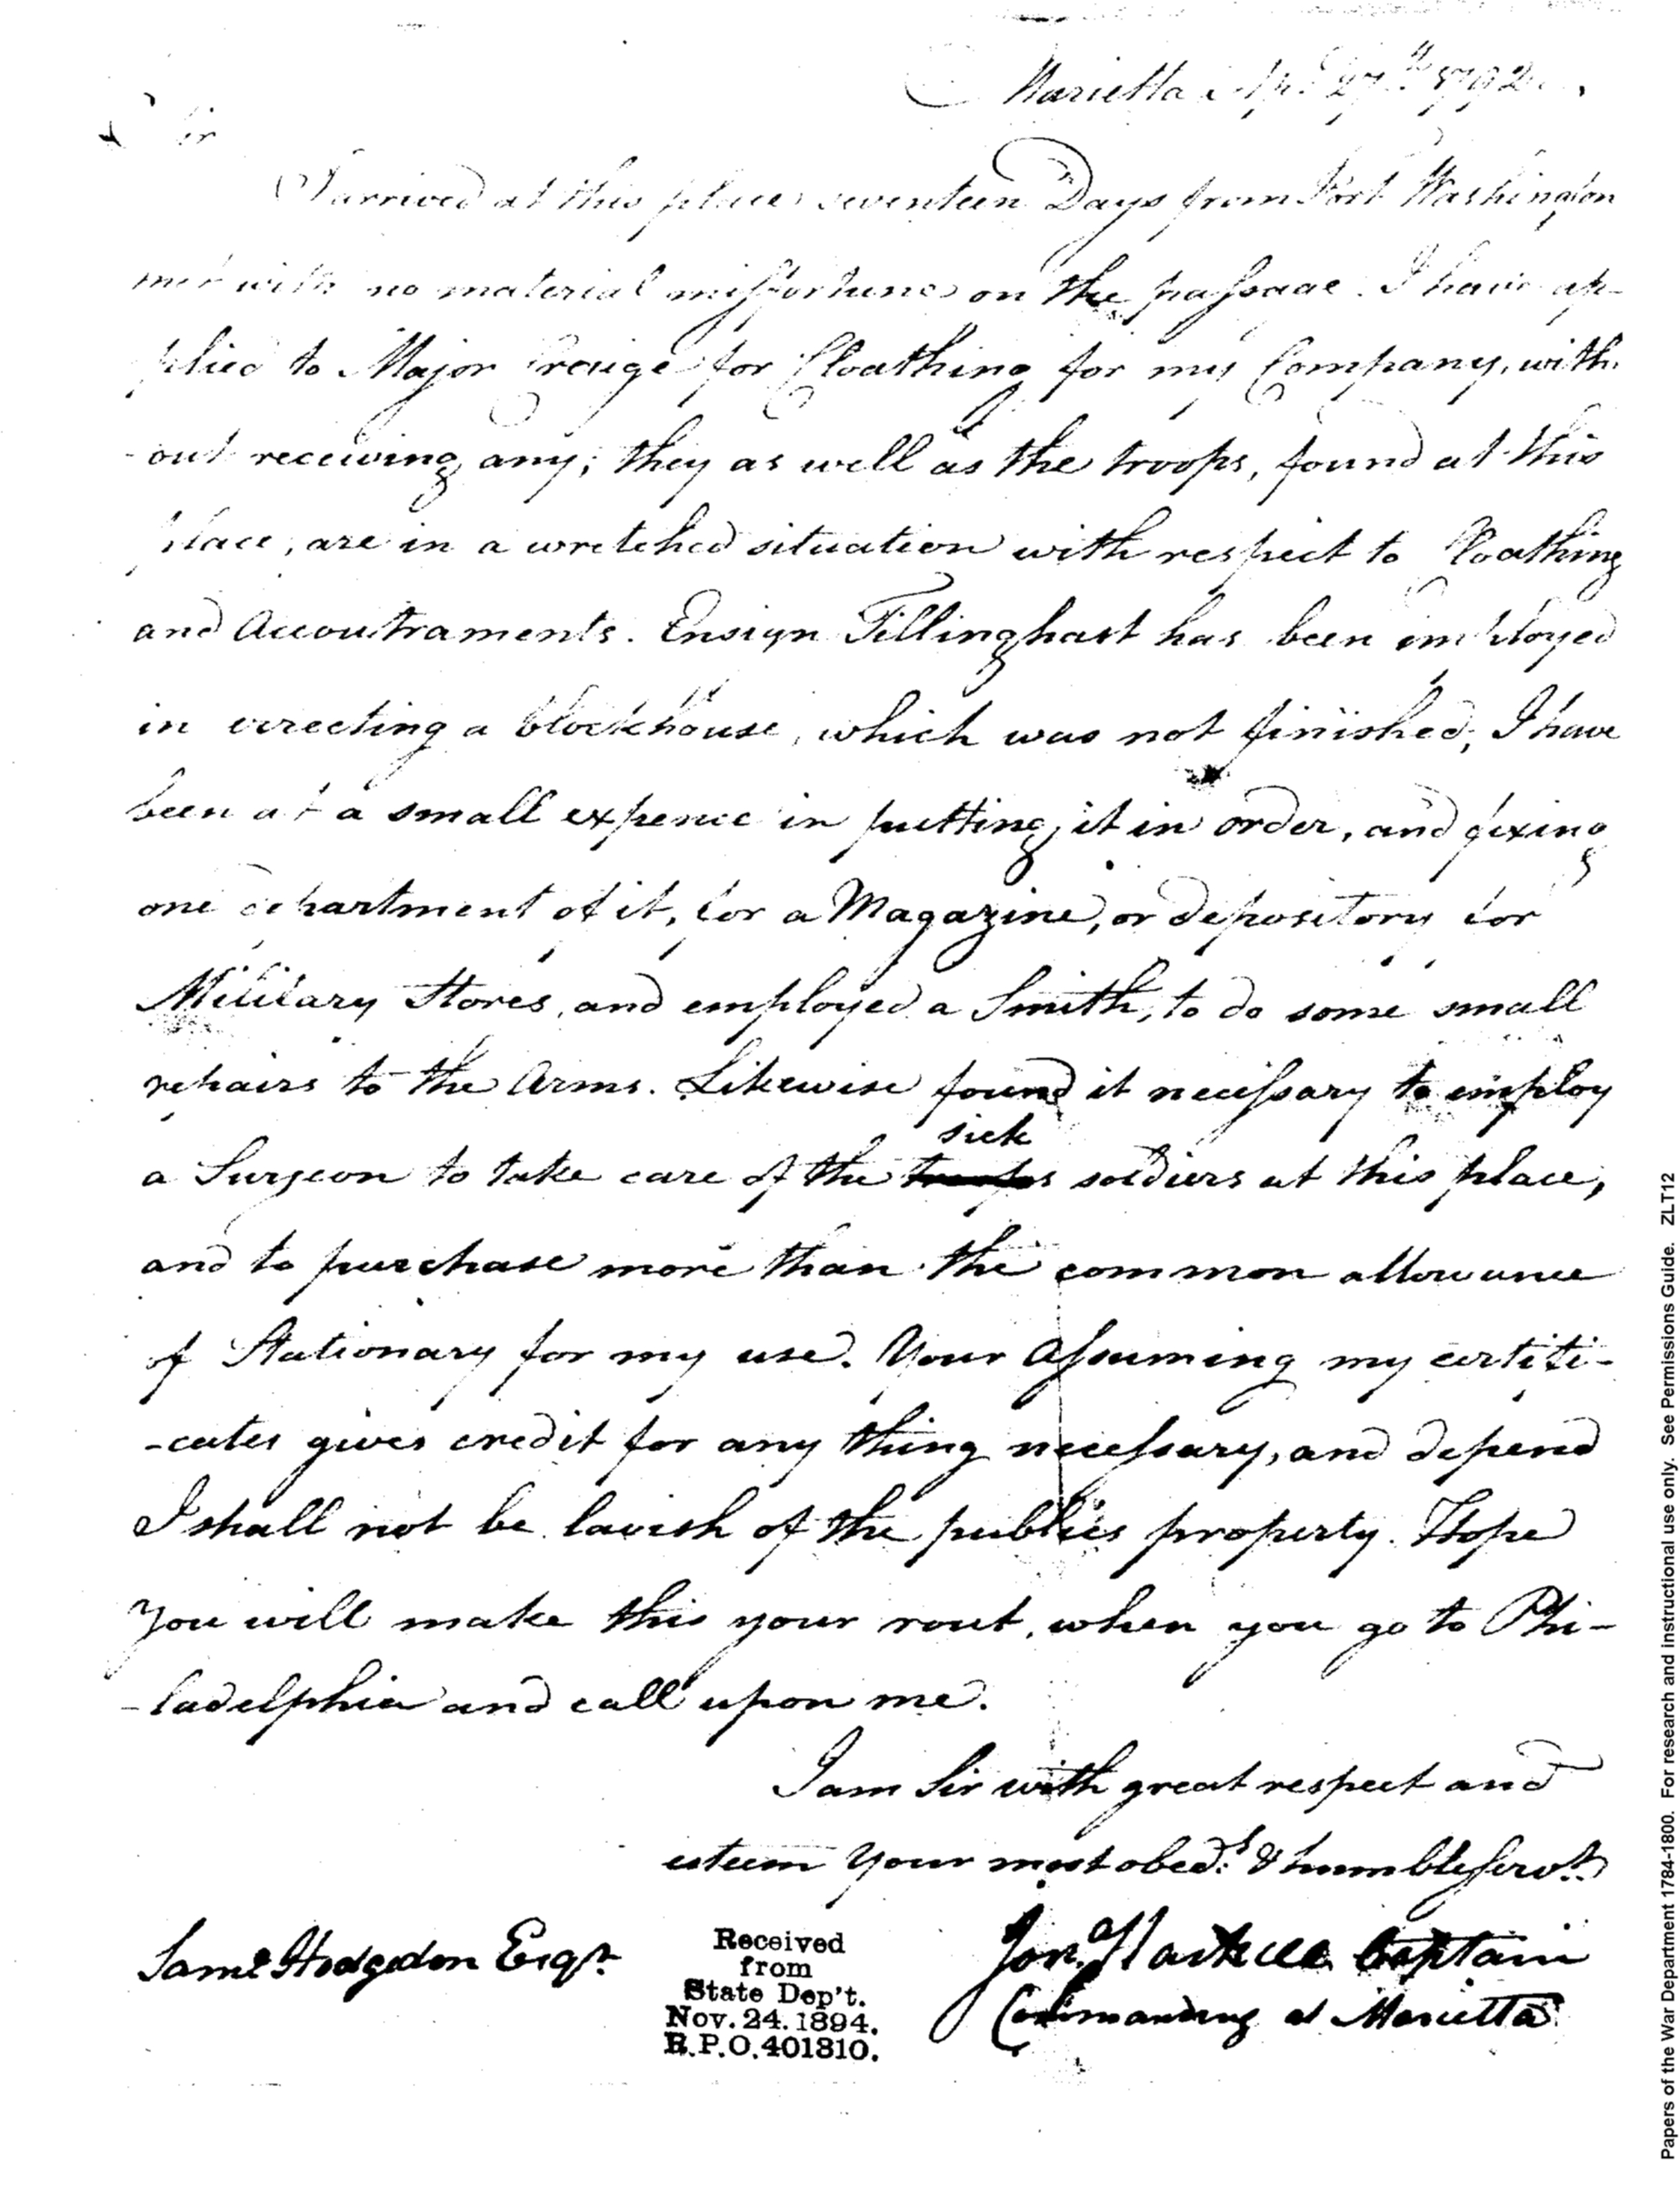 Marietta Apl. 27th 1792
Sir
I arrived at this place seventeen Days from Fort Washington
met with no material missfortune on the passage. I have ap-
plied to Major Craige for Cloathing for my Company, with-
-out receiving any; they as well as the troops, found at this
place, are in a wretched situation with respect to Cloathing
and Accoutraments. Ensign Tillinghast has been employed
in errecting a blockhouse, which was not finished; I have
been at a small expence in putting it in order, and fixing
one department of it, for a Magazine, or depository for
Military Stores, and employed a Smith, to do some small
repairs to the Arms. Likewise found it necessary to employ
sick
a Surgeon to take care of the troops soldiers at this place,
and to purchase more than the common allowance
of Stationary for my use. Your assuming my certifi-
-cates gives credit for any thing necessary, and depend
I shall not be lavish of the publics property. Hope
you will make this your rout, when you go to Phi-
-ladelphia and call upon me.
I am Sir with great respect and
esteem Your most obedt. & humble servt.
Jona. Haskell Captain
Commanding at Marietta
Saml. Hodgdon Esqr.
Received
from
State Dep't.
Nov. 24. 1894.
R.P.O. 401310.
Papers of the War Department 1784-1800. For research and instructional use only. See Permissions Guide. ZLT12